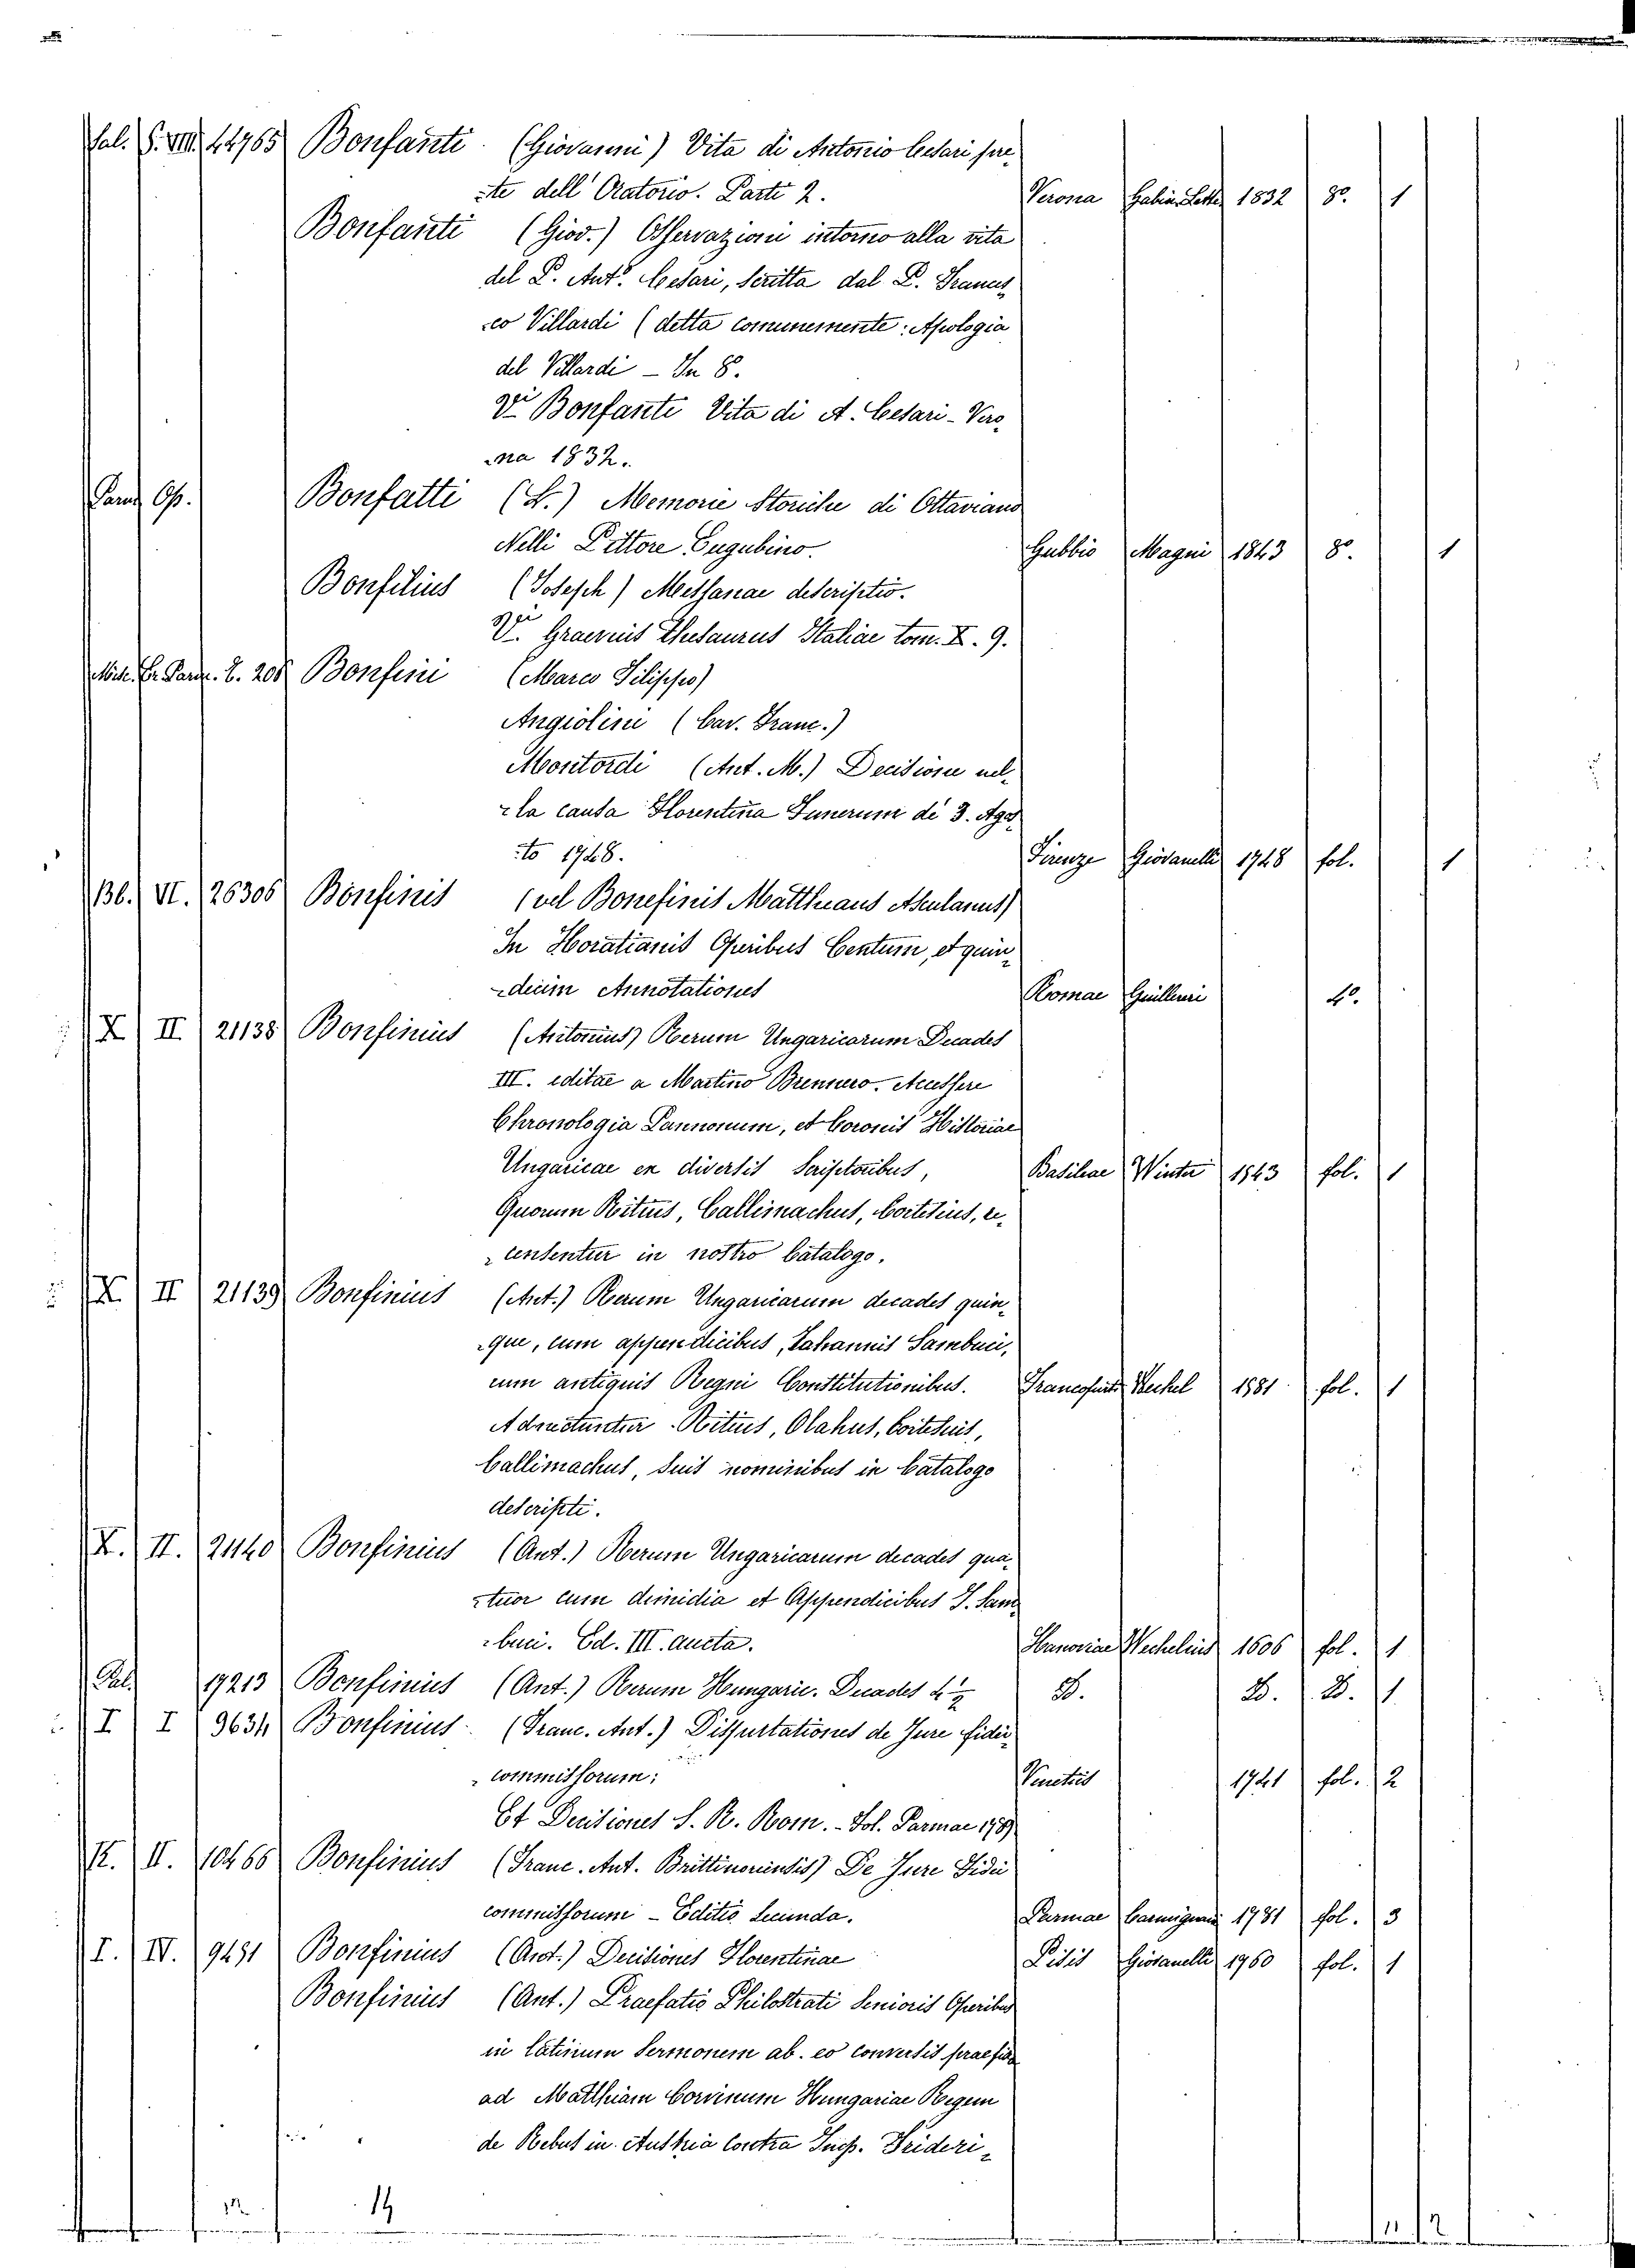 Sal. S. VIII. 44765 Bonfanti (Giovanni) Vita di Antonio Cesari pre
te dell' Oratorio. Parti 2. Verona Gabin. Lette. 1832 8.º 1
Bonfanti (Giov.) Osservazioni intorno alla vita
del P. Ant.º Cesari, scritta dal P. Frances
co Villardi (detta comunemente: Apologia
del Villardi - In 8.
Vi Bonfanti Vita di A. Cesari - Vero
na 1832.
Parm. Op. Bonfatti (L.) Memorie Storiche di Ottaviano
Nelli Pittore Eugubino. Gubbio Magni 1843 8.º 1
Bonfilius (Joseph) Messanae descriptio.
Vi Graevius Thesaurus Italiae tom. X. 9.
Misc. Er. Parm. 2. 208 Bonfini (Marco Filippo)
Angiolini (Cav. Franc.)
Montordi (Ant. M.) Decisione nel
la causa Florentina Funerum de 3. Agos
to 1748. Firenze Giovanelli 1748 fol. 1
Bb. VI. 26306 Bonfinis (vel Bonefinis Matthaeus Asculanus)
In Horatianis Operibus Centum, et quin
decim Annotationes Romae Guilleri 4.º
X II 21138 Bonfinius (Antonius) Rerum Ungaricarum Decades
III. editae a Martino Brennero. Acessere
Chronologia Pannonum, et Coronis Historiae
Ungaricae ex diversis Scriptoribus, Basileae Winter 1543 fol. 1
Quorum Ritius, Callimachus, Cortesius, re
censentur in nostro Catalogo.
X. II 21139 Bonfinius (Ant.) Rerum Ungaricarum decades quin
que, cum appendicibus, Iohannis Sambuci,
cum antiquis Regni Constitutionibus. Francofurti Wechel 1581 fol. 1
Adnectuntur Ritius, Olahus, Cortesius,
Callimachus, suis nominibus in Catalogo
descripti.
X. II. 21140 Bonfinius (Ant.) Rerum Ungaricarum decades qua
tuor cum dimidia et Appendicibus J. Sam
buci. Ed. III. aucta. Hanoviae Wechelius 1606 fol. 1
Pal. 17213 Bonfinius (Ant.) Rerum Hungaric. Decades 4 ½ D. D. D. 1
I I 9634 Bonfinius (Franc. Ant.) Dissertationes de Jure fidei
commissorum: Venetiis 1741 fol. 2
Et Decisiones S. R. Rom. - Fol. Parmae 1789
K. II. 10466 Bonfinius (Franc. Ant. Brittinoriensis) De Jure Fidei
commissorum - Editio secunda. Parmae Carmignani 1781 fol. 3
I. IV. 9491 Bonfinius (Ant.) Decisiones Florentinae Pisis Giovanelli 1760 fol. 1
Bonfinius (Ant.) Praefatio Philostrati Senioris Operibus
in latinum Sermonem ab. eo conversis praefixa
ad Matthiam Corvinum Hungariae Regem
de Rebus in Austria contra Imp. Frideri
12 14 11 2